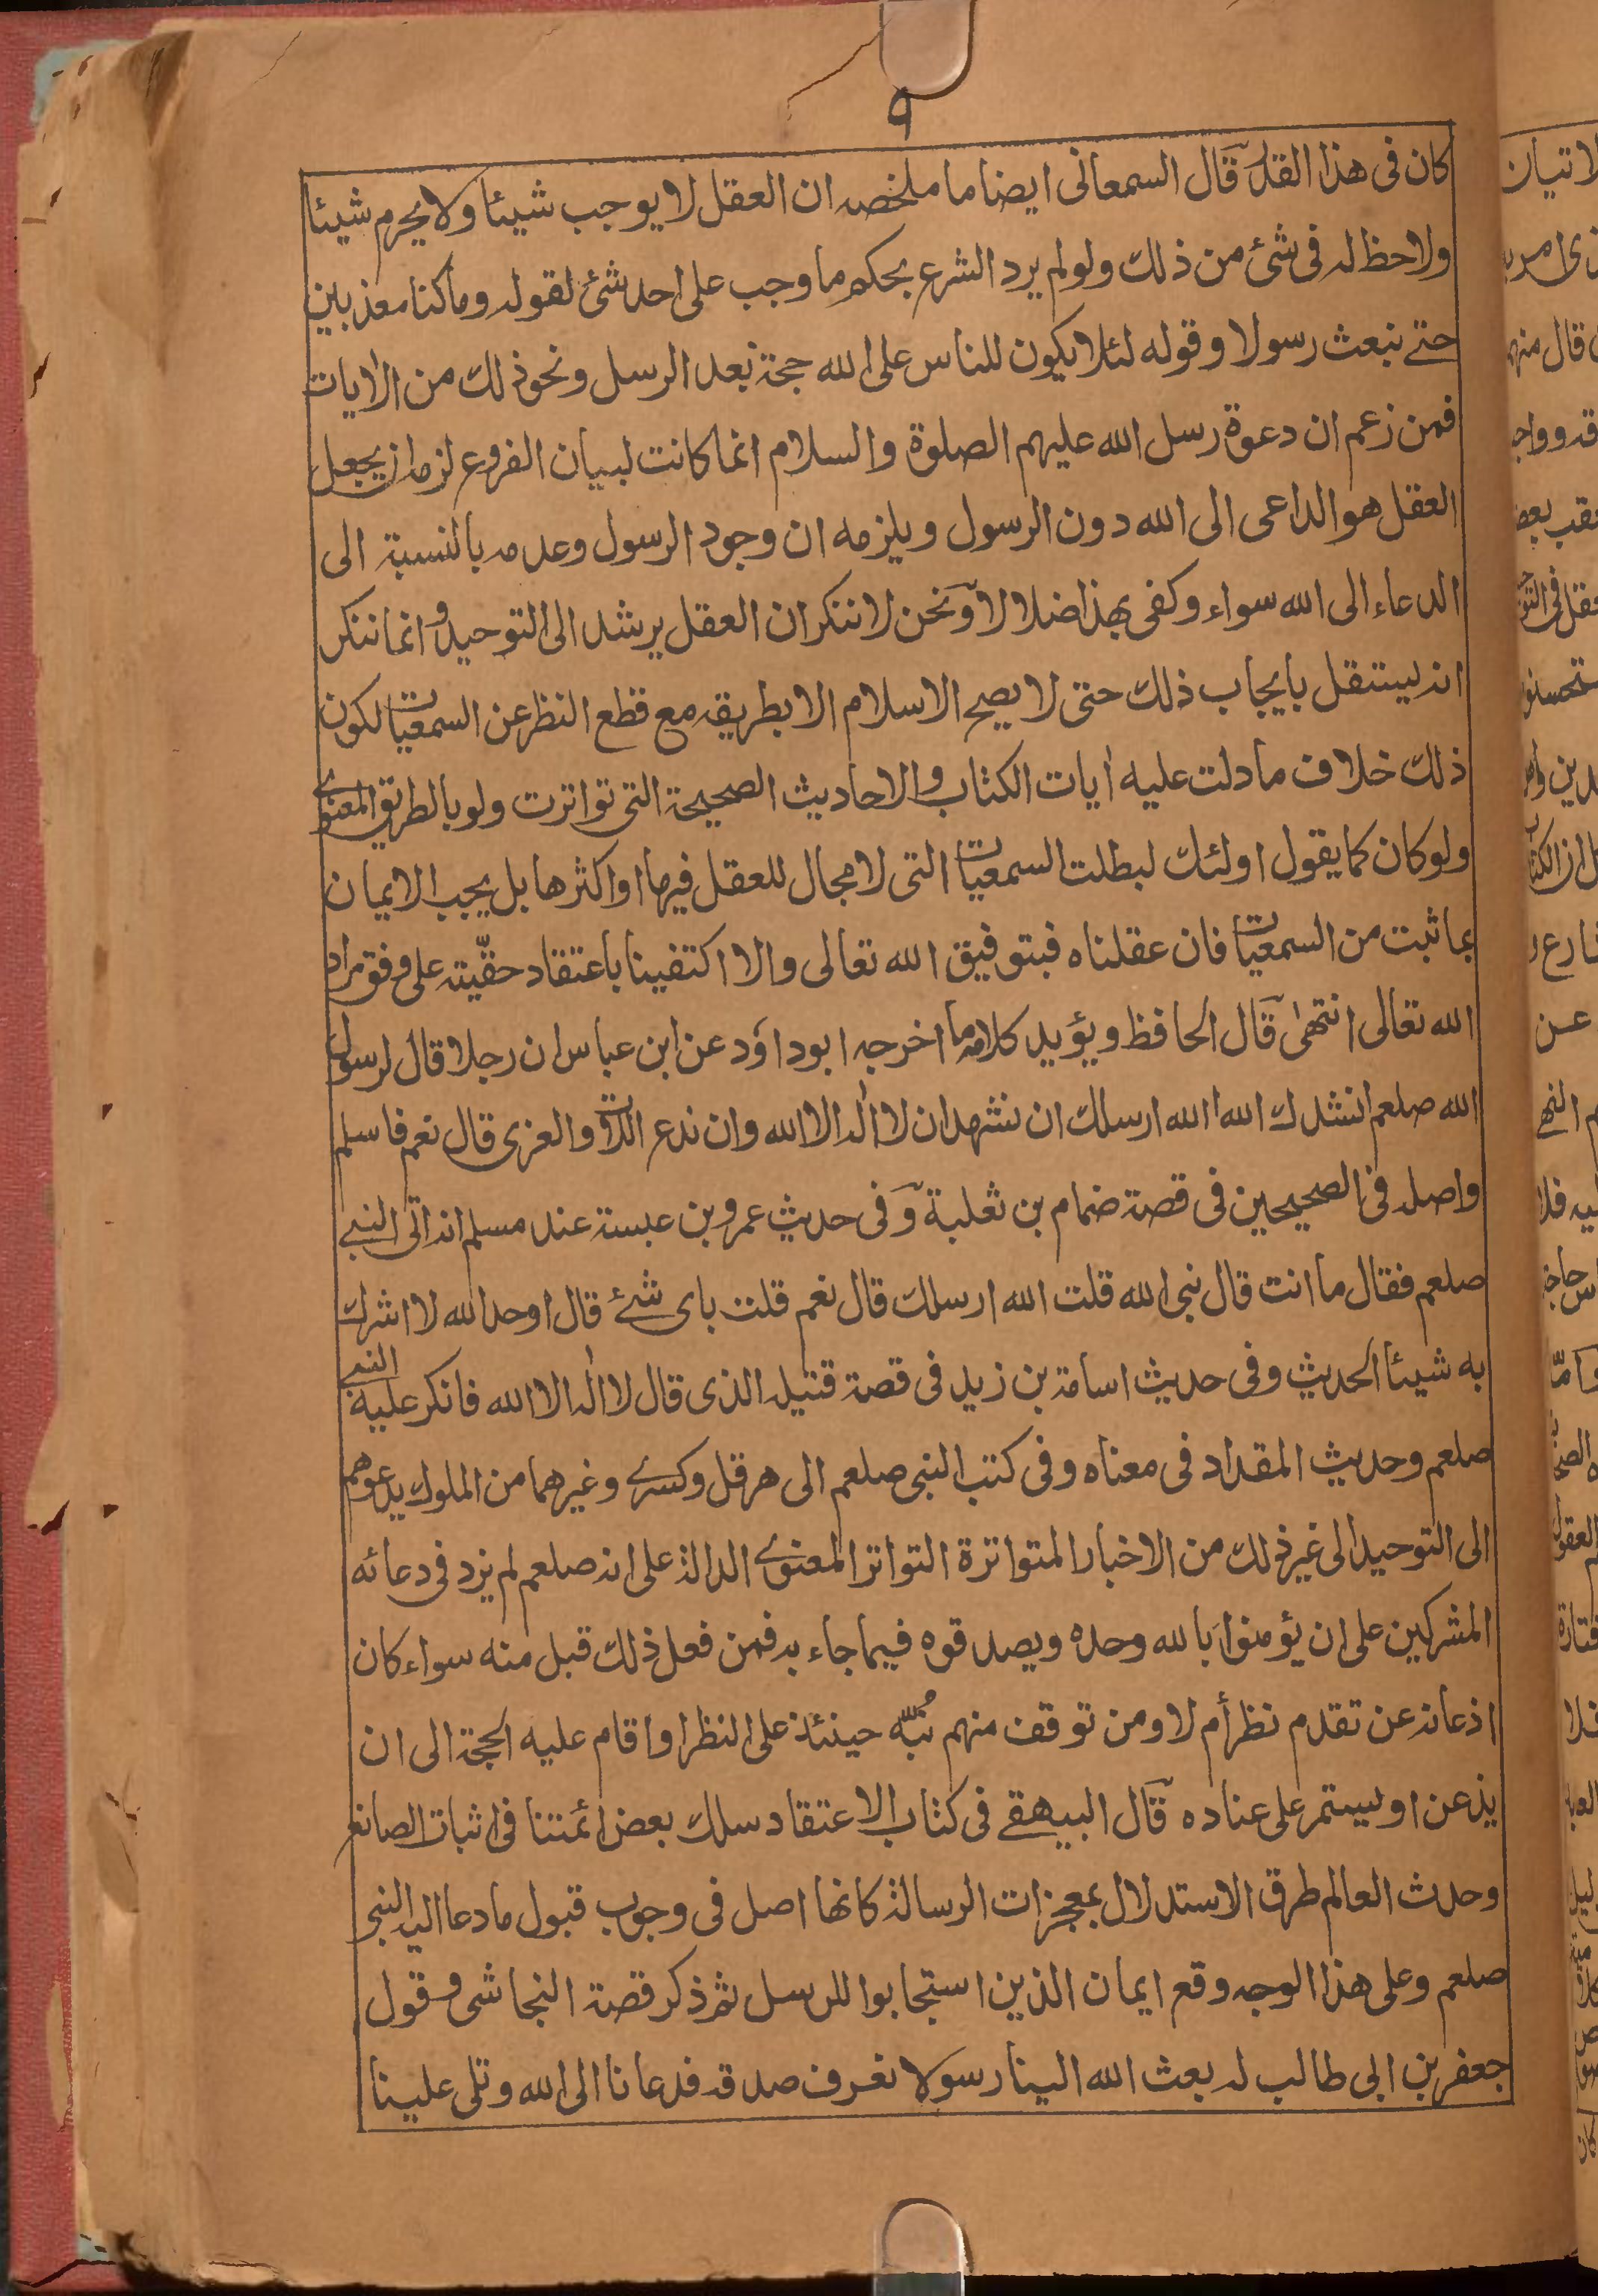 ٩
كان فى هذا القدر قال السمعانى ايضا ما ملخصه ان العقل لا يوجب شيئا ولا يحرم شيئا
ولاحظ له فى شئ من ذلك ولو لم يرد الشرع بحكم ما وجب على احد شئ لقوله وما كنا معذبين
حتے نبعث رسولا وقوله لئلا يكون للناس على الله حجة بعد الرسل ونحو ذلك من الأيات
فمن زعم ان دعوة رسل الله عليهم الصلوة والسلام انما كانت لبيان الفروع لزمه ان يجعل
العقل هو الداعى الى الله دون الرسول ويلزمه ان وجود الرسول وعدمه بالنسبة الى
الدعاء الى الله سواء وكفى بهذا ضلالا ونحن لا ننكر ان العقل يرشد الى التوحيد وانما ننكر
انه ليستقل بايجاب ذلك حتى لا يصح الاسلام الا بطريقه مع قطع النظر عن السمعيات لكون
ذلك خلاف ما دلت عليه أيات الكتاب والاحاديث الصحيحة التى تواترت ولو بالطريق المعنوى
ولو كان كما يقول اولئك لبطلت السمعيات التى لا مجال للعقل فيها او اكثرها بل يجب الايمان
بما ثبت من السمعيات فان عقلناه فبتوفيق الله تعالى والا اكتفينا باعتقاد حقّيته على وفق مراد
الله تعالى انتهىٰ قال الحافظ ويؤيد كلامه ما اخرجه ابو داؤد عن ابن عباس ان رجلا قال لرسول
الله صلعم انشدك الله أالله ارسلك ان نشهد ان لا اله الا الله وان ندع اللات والعزى قال نعم فاسلم
واصله فى الصحيحين فى قصة ضمام بن ثعلبة وفى حديث عمرو بن عبسة عند مسلم انه اتى النبے
صلعم فقال ما انت قال نبى الله قلت الله ارسلك قال نعم قلت باى شئے قال اوحد الله لا اشرك
به شيئا الحديث وفى حديث اسامة بن زيد فى قصة قتيله الذى قال لا اله الا الله فانكر عليه النبى
صلعم وحديث المقداد فى معناه وفى كتب النبى صلعم الى هرقل وكسرے وغيرهما من الملوك يدعوهم
الى التوحيد الى غير ذلك من الاخبار المتواترة التواتر المعنوے الدالة على انه صلعم لم يزد فى دعائه
المشركين على ان يؤمنوا بالله وحده ويصدقوه فيما جاء به فمن فعل ذلك قبل منه سواء كان
اذعانه عن تقدم نظر أم لا ومن توقف منهم نُبّه حينئذ على النظر او اقام عليه الحجة الى ان
يذعن او ليستمر على عناده قال البيهقے فى كتاب الاعتقاد سلك بعض ائمتنا فى اثبات الصانع
وحدث العالم طرق الاستدلال بمعجزات الرسالة كانها اصل فى وجوب قبول ما دعا اليه النبى
صلعم وعلى هذا الوجه وقع ايمان الذين استجابوا للرسل ثم ذكر قصة النجاشى وقول
جعفر بن ابى طالب له بعث الله الينا رسولا نعرف صدقه فدعانا الى الله وتلى علينا